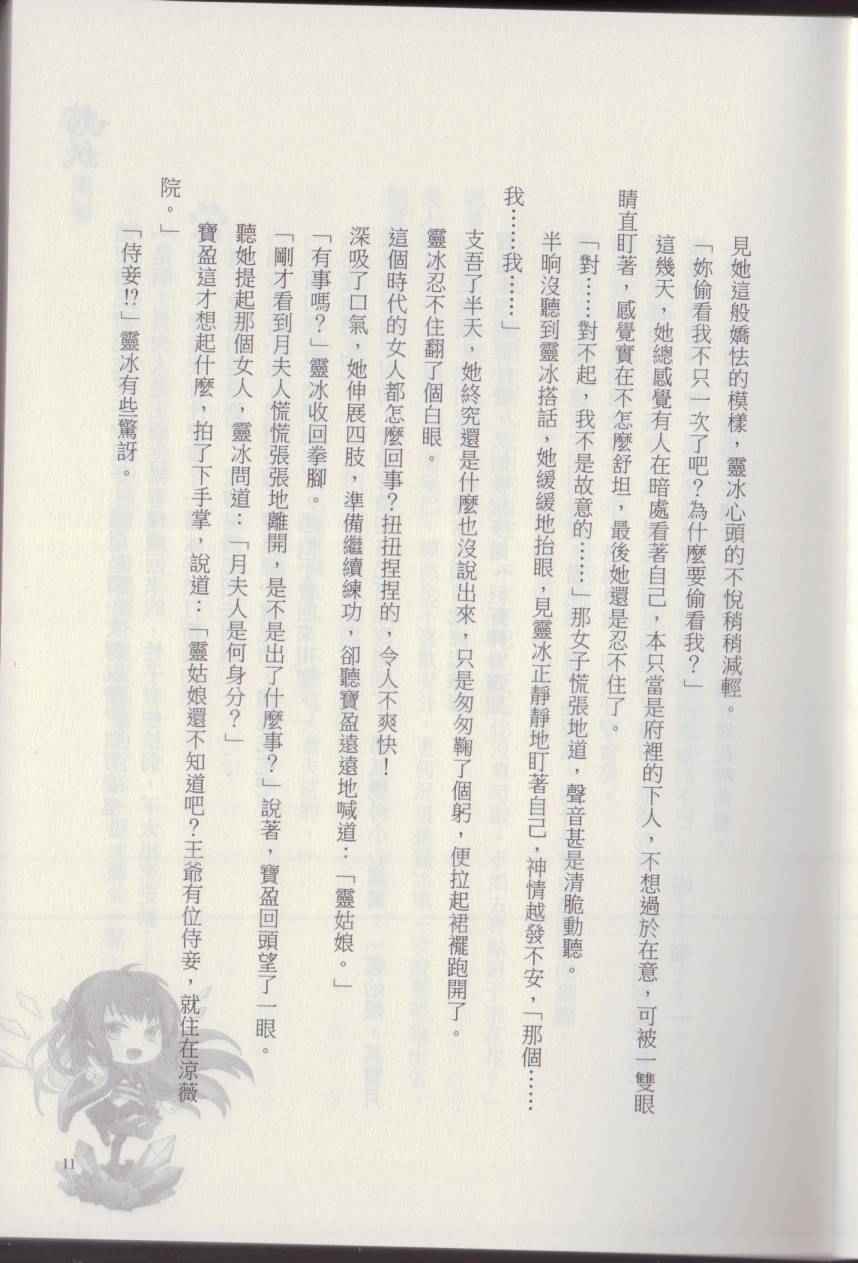 見她這般嬌怯的模樣，靈冰心頭的不悅稍稍減輕。
「妳偷看我不只一次了吧？為什麼要偷看我？」
這幾天，她總感覺有人在暗處看著自己，本只當是府裡的下人，不想過於在意，可被一雙眼
睛直盯著，感覺實在不怎麼舒坦，最後她還是忍不住了。
「對……對不起，我不是故意的……」那女子慌張地道，聲音甚是清脆動聽。
半晌沒聽到靈冰搭話，她緩緩地抬眼，見靈冰正靜靜地盯著自己，神情越發不安，「那個……
我……我……」
支吾了半天，她終究還是什麼也沒說出來，只是匆匆鞠了個躬，便拉起裙襬跑開了。
靈冰忍不住翻了個白眼。
這個時代的女人都怎麼回事？扭扭捏捏的，令人不爽快！
深吸了口氣，她伸展四肢，準備繼續練功，卻聽寶盈遠遠地喊道：「靈姑娘。」
「有事嗎？」靈冰收回拳腳。
「剛才看到月夫人慌慌張張地離開，是不是出了什麼事？」說著，寶盈回頭望了一眼。
聽她提起那個女人，靈冰問道：「月夫人是何身分？」
寶盈這才想起什麼，拍了下手掌，說道：「靈姑娘還不知道吧？王爺有位侍妾，就住在涼薇
院。」
「侍妾!?」靈冰有些驚訝。
11